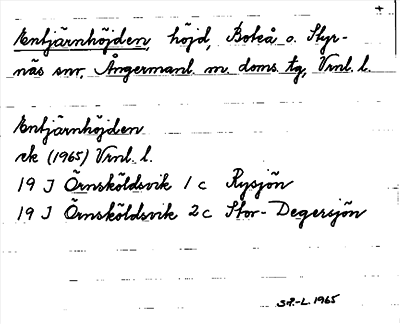 +
Entjärnhöjden, höjd, Boteå o. Styr-
näs snr, Ångermanl. m. doms. tg, Vrnl. l.
Entjärnhöjden
ek (1965) Vrnl. l.
19 J Örnsköldsvik 1 c Rysjön
19 J Örnsköldsvik 2 c Stor-Degersjön
1965